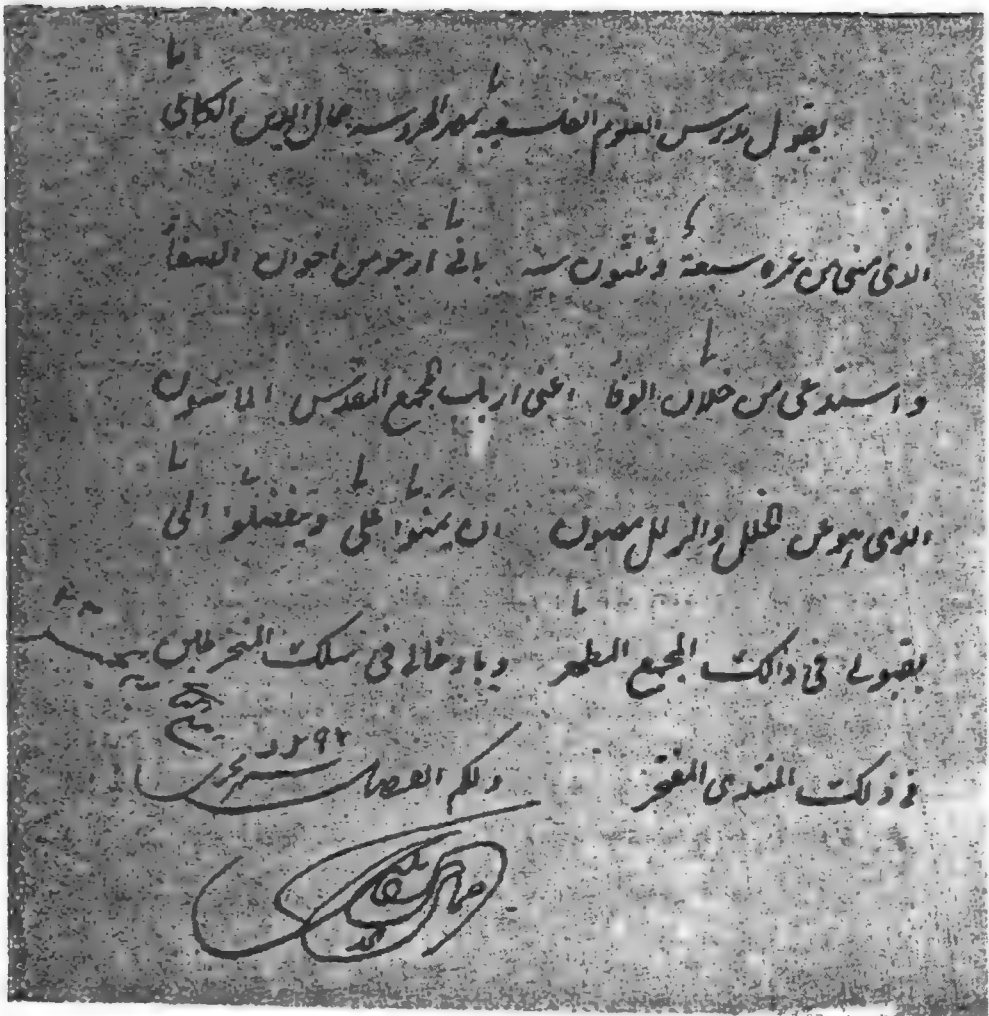 يقول مدرس العلوم الفلسفية بمصر المحروسة جمال الدين الكابلي
الذي مضى من عمره سبعة وثلثون سنة باني ارجو من اخوان الصفا
واستدعي من خلان الوفا اعني ارباب المجمع المقدس الماسون
الذي هو عن الخلل والزلل مصون ان يمنوا علي ويتفضلوا الي
بقبولي في ذلك المجمع المطهر وبادخالي في سلك المنخرطين
في ذلك المنتدى المفتخر ولكم الفضل
١٢٩٢